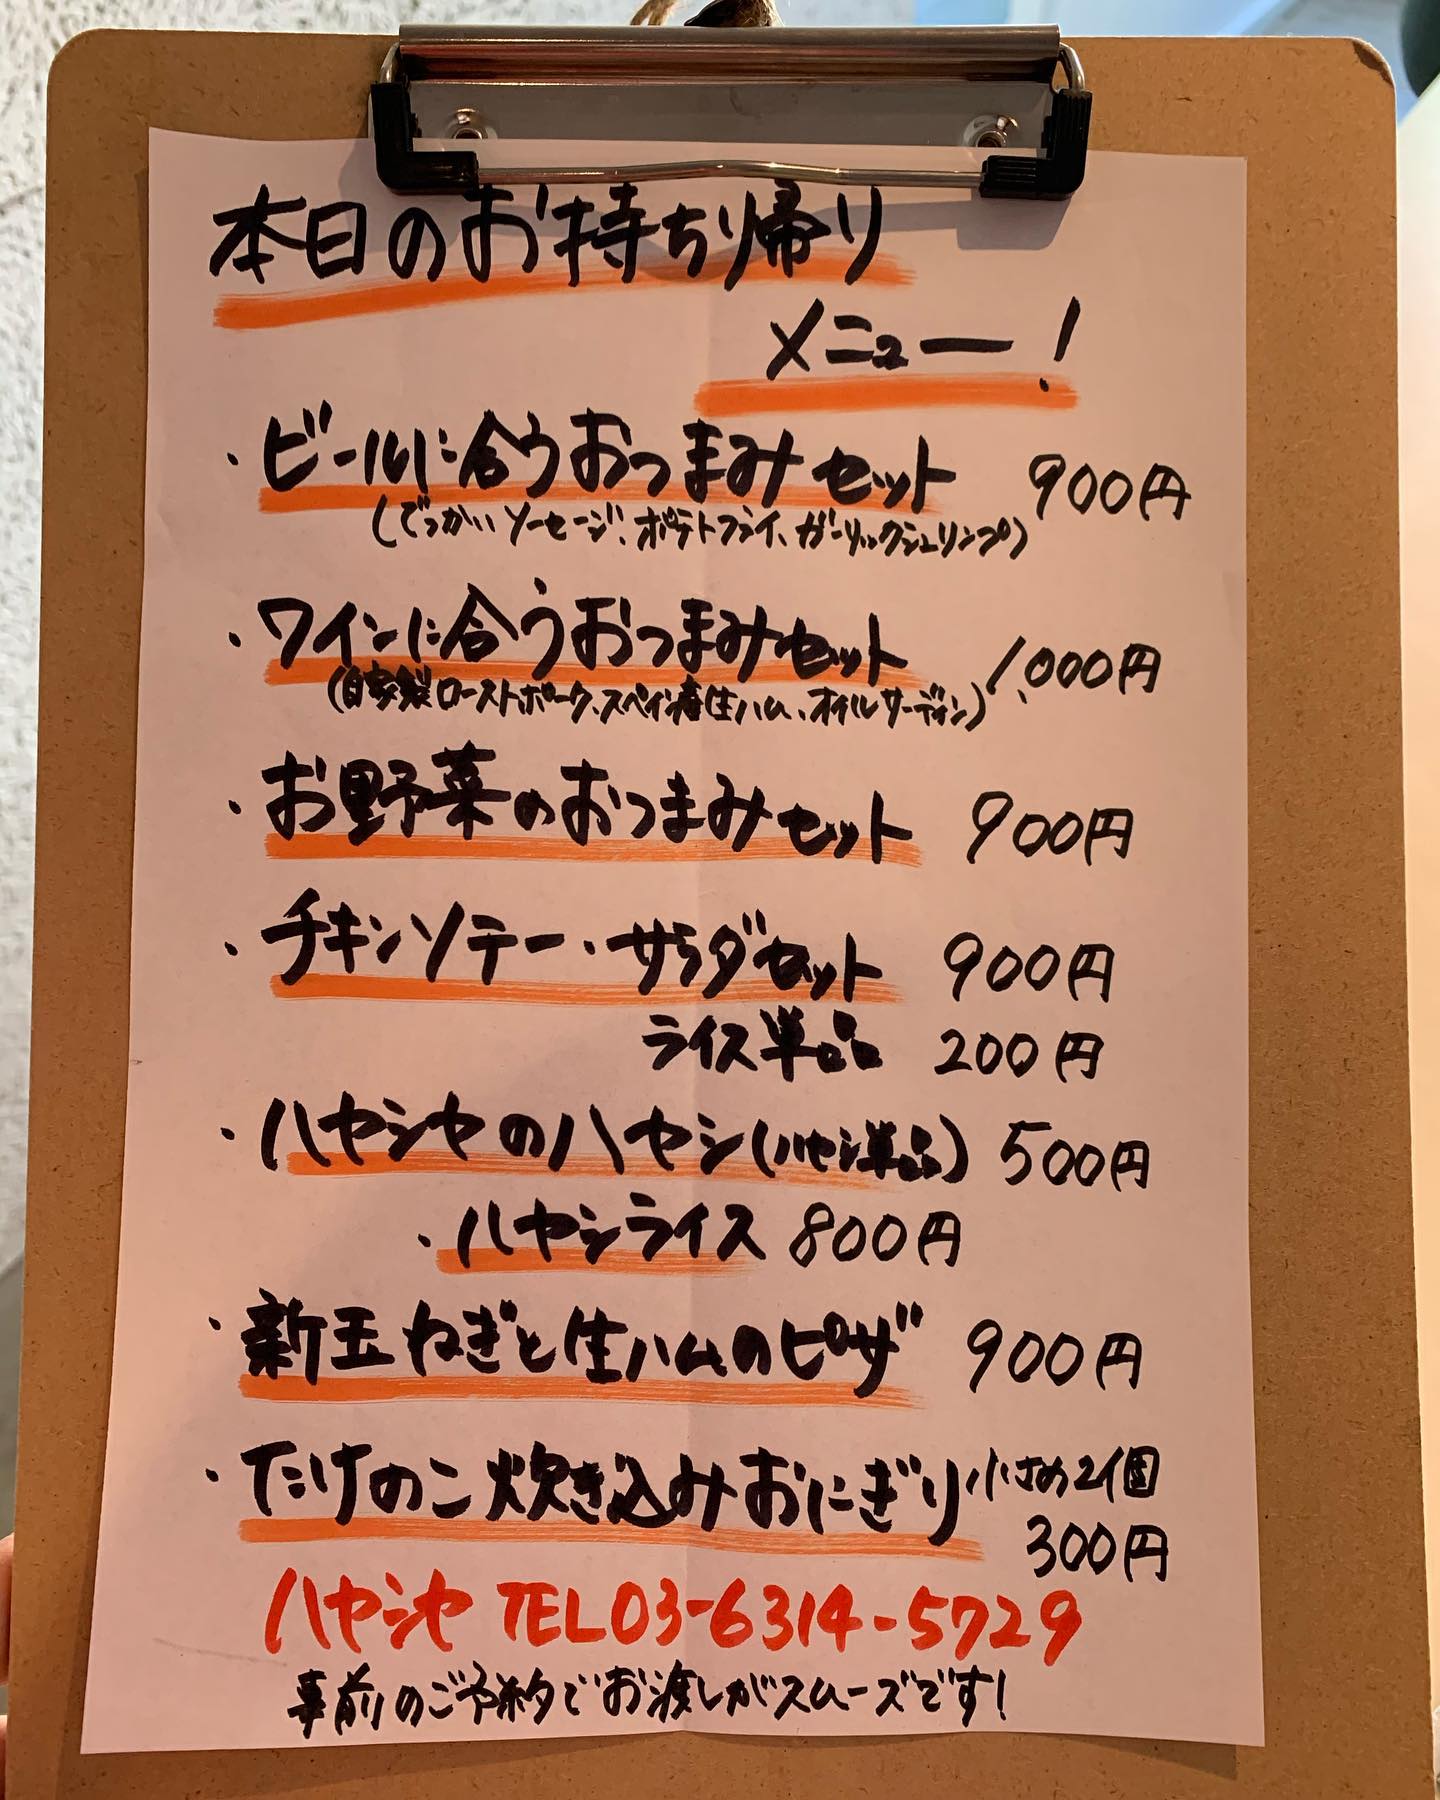 本日のお持ち帰り
メニュー!
・ビールに合うおつまみセット 900円
(でっかいソーセージ、ポテトフライ、ガーリックシュリンプ)
・ワインに合うおつまみセット 1,000円
(自家製ローストポーク、スペイン産生ハム、オイルサーディン)
・お野菜のおつまみセット 900円
・チキンソテー・サラダセット 900円
ライス単品 200円
・ハヤシヤのハヤシ(ハヤシ単品) 500円
・ハヤシライス 800円
・新玉ねぎと生ハムのピザ 900円
・たけのこ炊き込みおにぎり 小さめ2個
300円
ハヤシヤ TEL03-6314-5729
事前のご予約でお渡しがスムーズです!